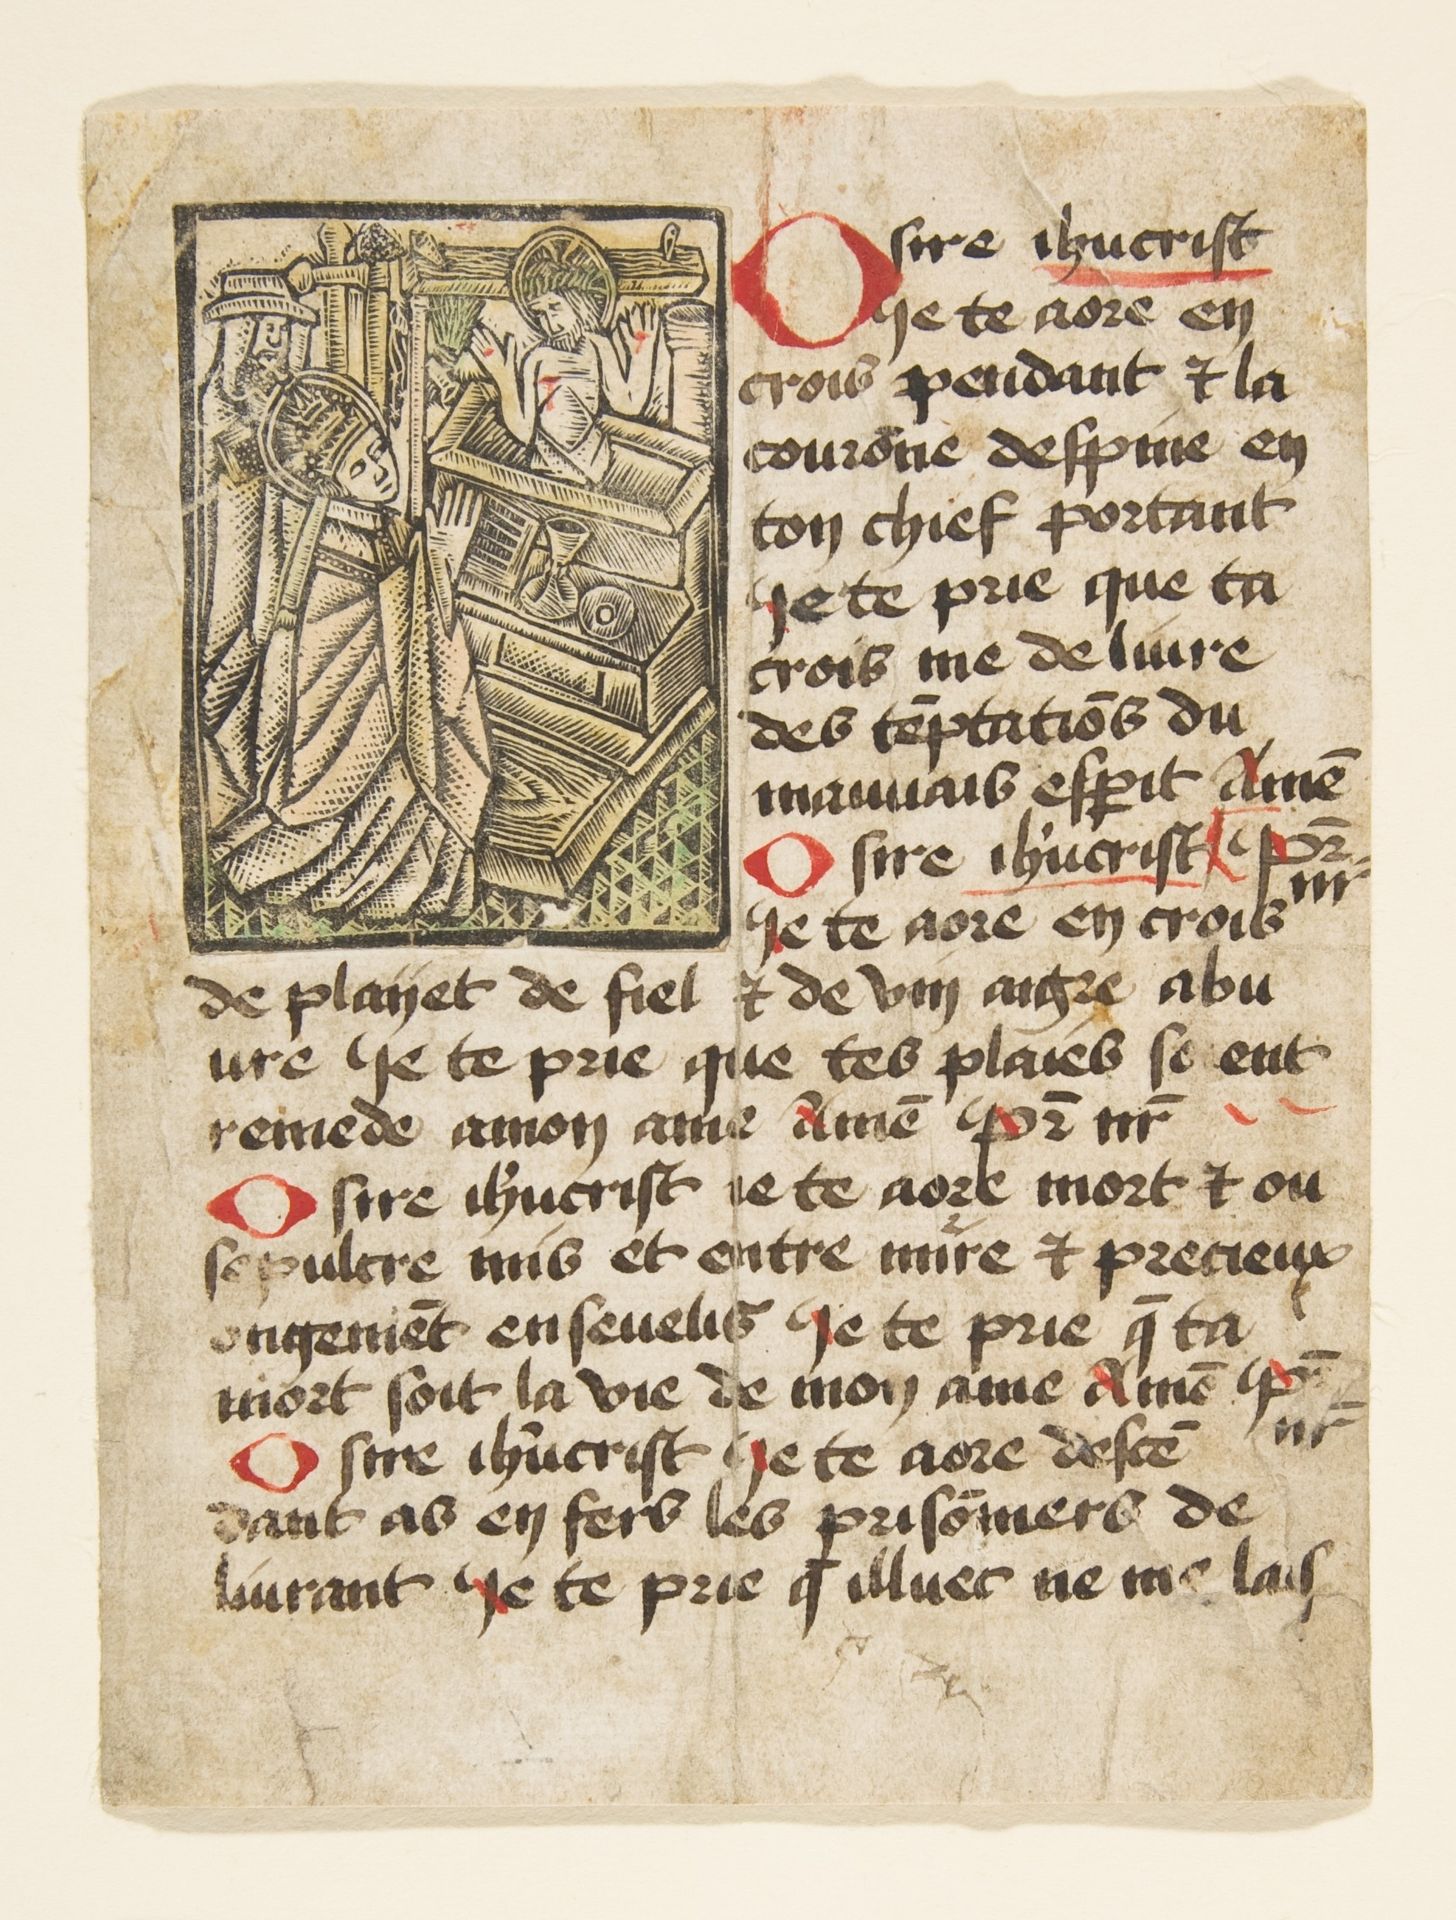 O sire ih̄ucrist
Je te aore en
crois pendant ⁊ la
courōne despine en
ton chief portant
Je te prie que ta
crois me deliure
des tēptatiōs du
mauuais esperit Amē
O sire ih̄ucrist Pr̄
nr̄
Je te aore en crois
de playet de fiel ⁊ de vin aigre abu
ure Je te prie que tes plaies soient
remede amon ame Amē Pr̄ nr̄
O sire ih̄ucrist ie te aore mort ⁊ ou
sepulcre mis et entre mirre ⁊ precieux
ongemēt enseuelis Je te prie q̄ ta
mort soit la vie de mon ame Amē Pr̄
nr̄
O sire ih̄ucrist Je te aore descē
dant as enfers les prisōniers de
liurant Je te prie q̄ illuec ne me lais